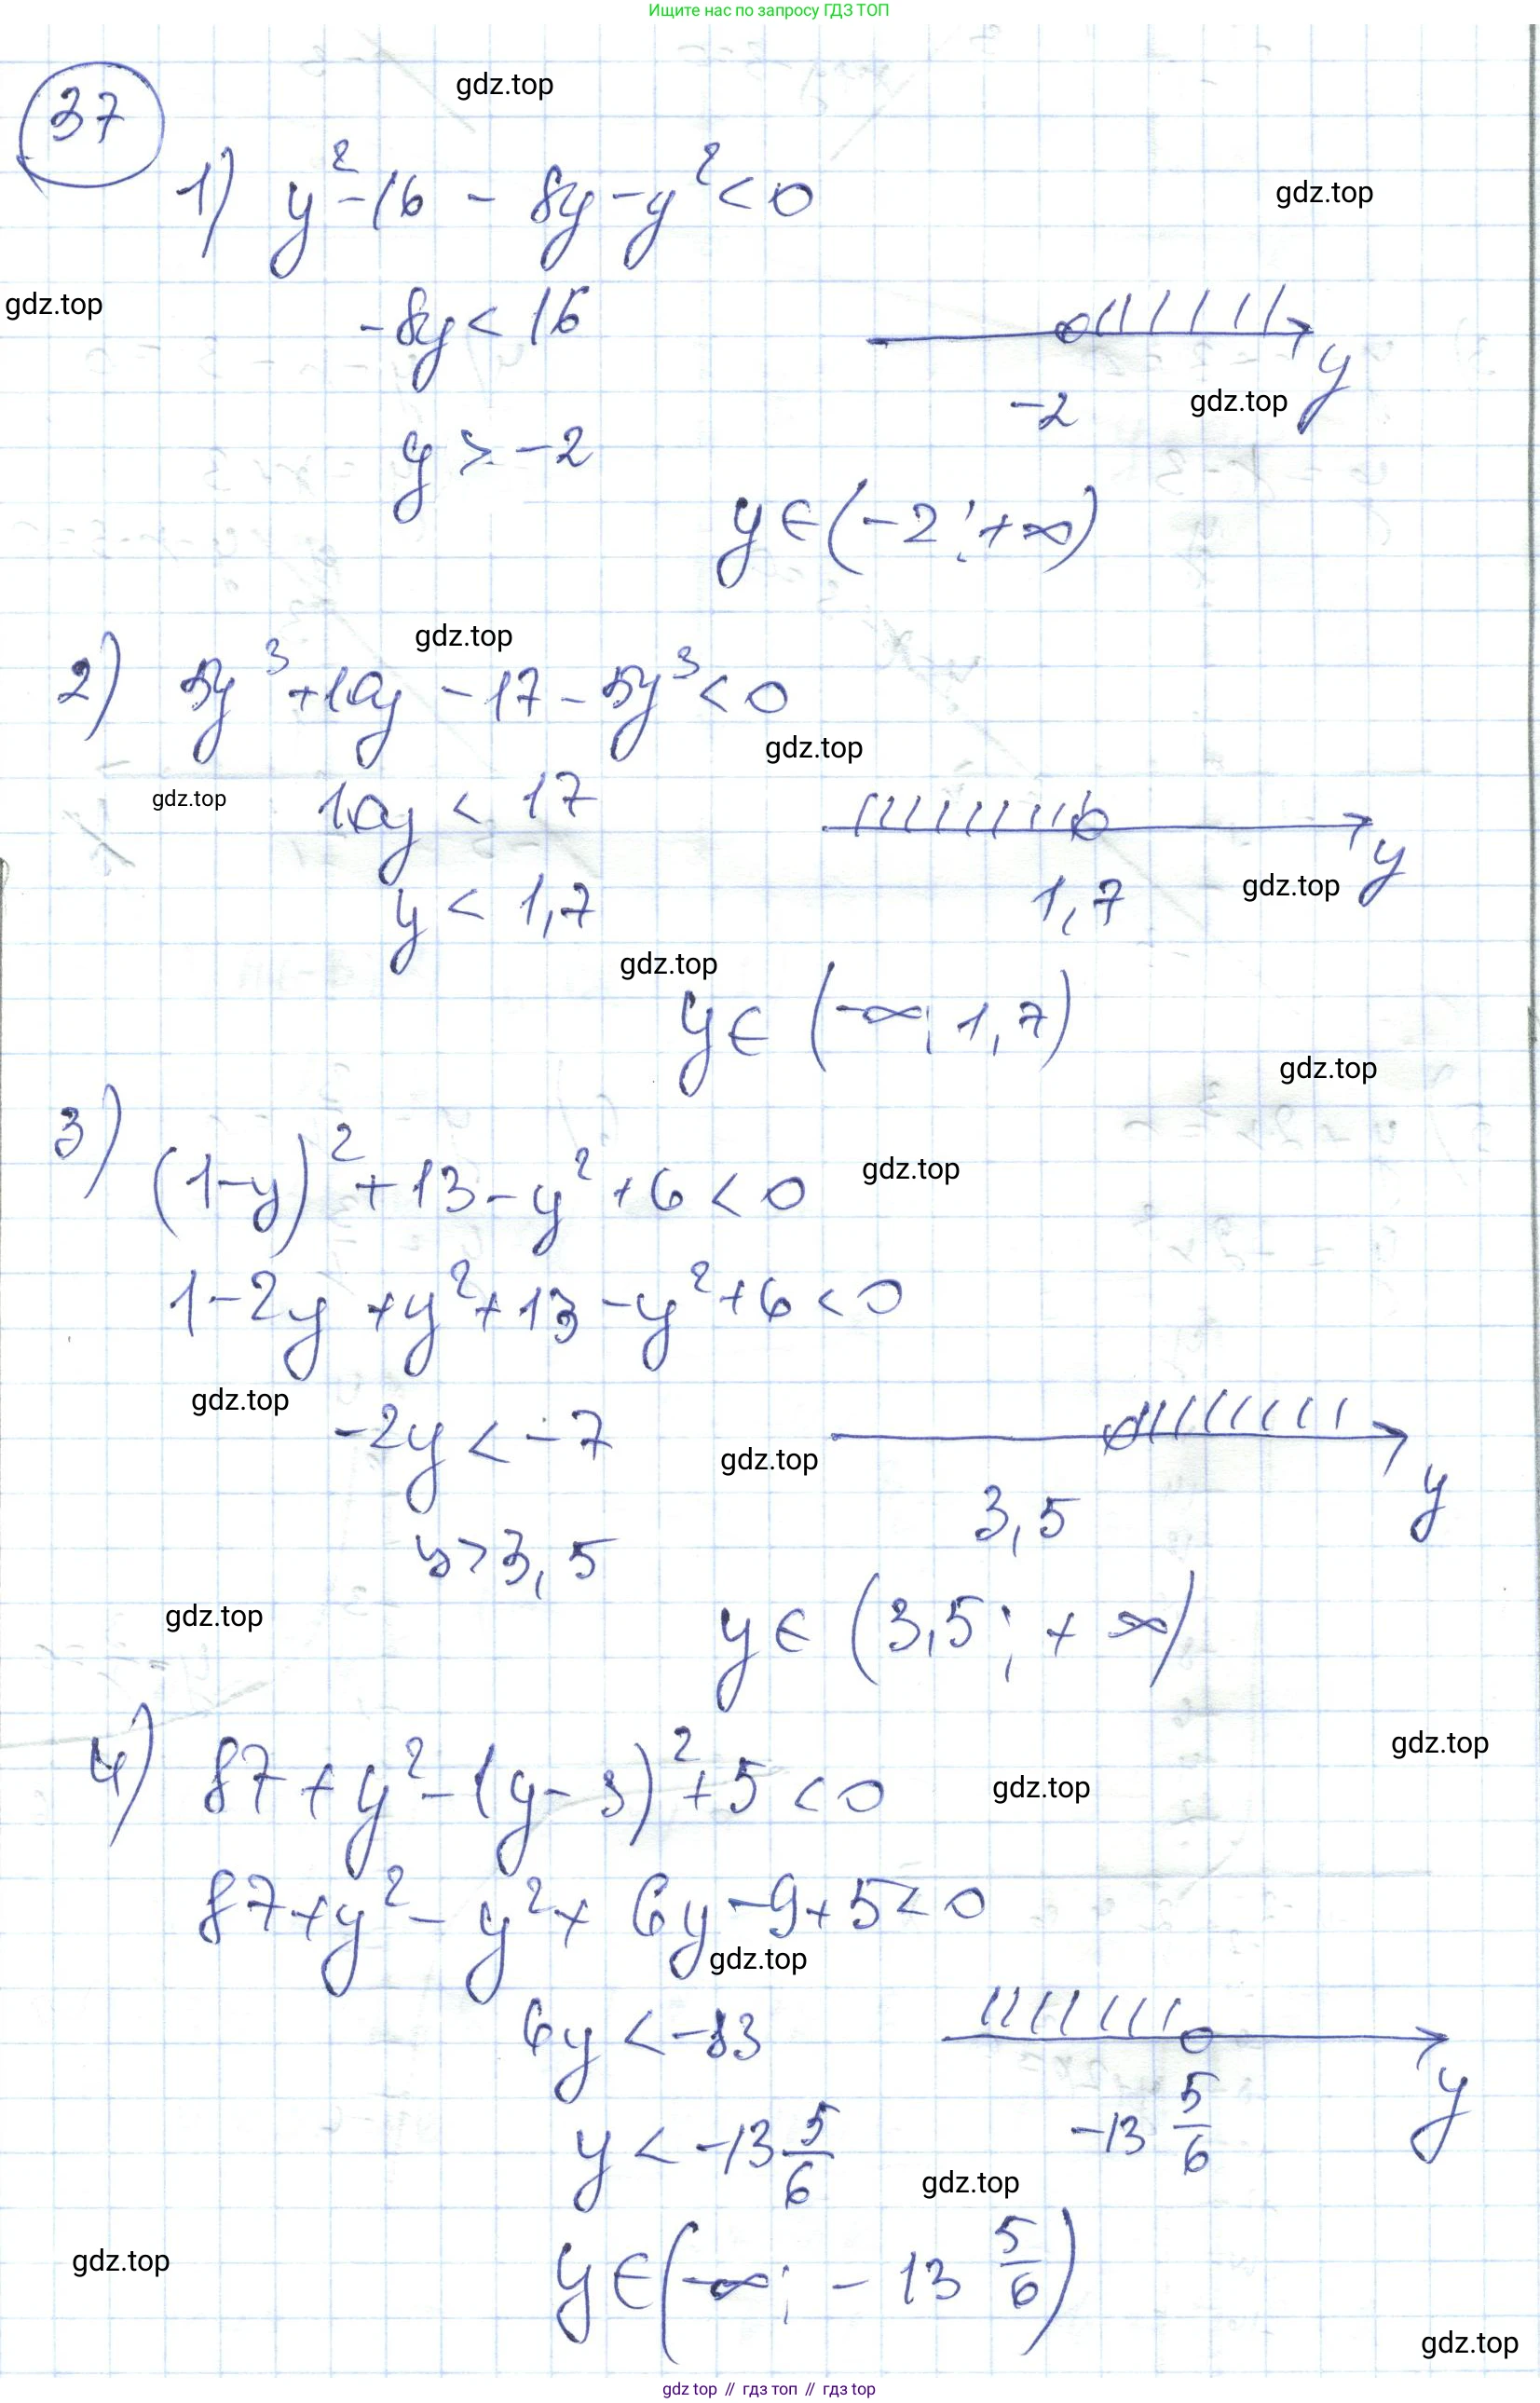 Ищите нас по запросу ГДЗ ТОП
37
gdz.top
1) y² - 16 - 8y - y² < 0
gdz.top
gdz.top
-8y < 16
y
-2
gdz.top
y > -2
y ∈ (-2; +∞)
gdz.top
2) 5y³ + 10y - 17 - 5y³ < 0
gdz.top
gdz.top
10y < 17
y
y < 1,7
1,7
gdz.top
gdz.top
y ∈ (-∞; 1,7)
gdz.top
3) (1-y)² + 13 - y² + 6 < 0
gdz.top
1 - 2y + y² + 13 - y² + 6 < 0
gdz.top
-2y < -7
gdz.top
y
3,5
y > 3,5
gdz.top
y ∈ (3,5; +∞)
gdz.top
4) 87 + y² - (y - 3)² + 5 < 0
gdz.top
87 + y² - y² + 6y - 9 + 5 < 0
gdz.top
6y < -83
y
y < -13 5/6
-13 5/6
gdz.top
gdz.top
y ∈ (-∞; -13 5/6)
gdz.top
gdz top // гдз топ // гдз top